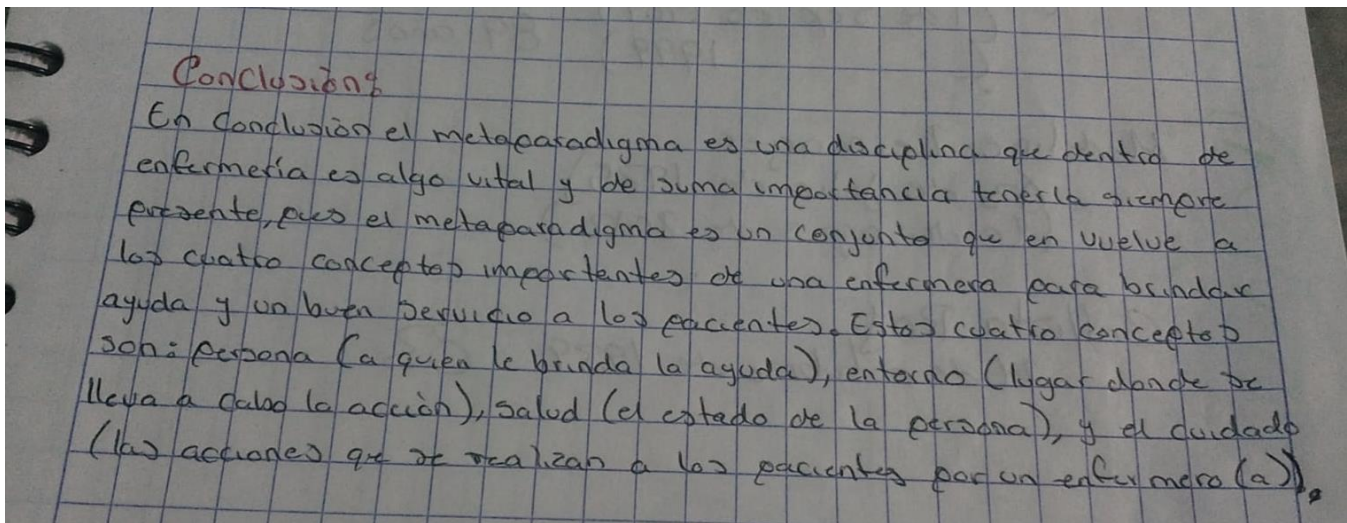 Conclusión:
En conclusión el metaparadigma es una disciplina que dentro de
enfermería es algo vital y de suma importancia tenerla siempre
presente, pues el metaparadigma es un conjunto que en vuelve a
los cuatro conceptos importantes de una enfermera para brindar
ayuda y un buen servicio a los pacientes. Estos cuatro conceptos
son: persona (a quien le brinda la ayuda), entorno (lugar donde se
lleva a cabo la acción), salud (el estado de la persona), y el cuidado
(las acciones que se realizan a los pacientes por un enfermero (a)).